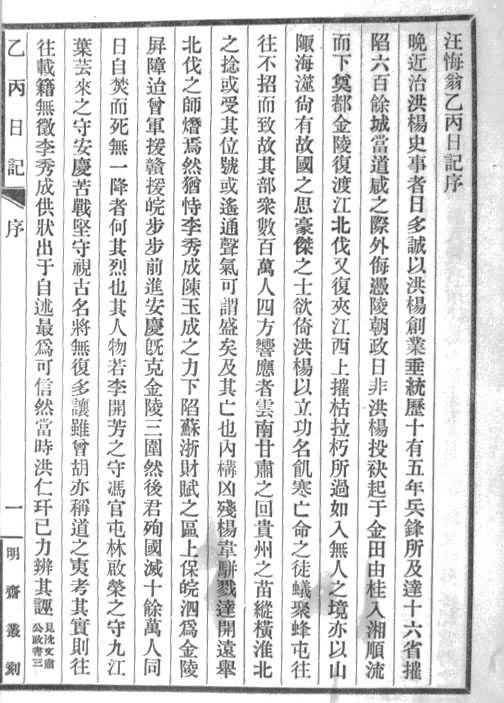 汪悔翁乙丙日記序
晚近治洪楊史事者日多誠以洪楊創業垂統歷十有五年兵鋒所及達十六省摧
陷六百餘城當道咸之際外侮憑陵朝政日非洪楊投袂起于金田由桂入湘順流
而下奠都金陵復渡江北伐又復夾江西上摧枯拉朽所過如入無人之境亦以山
陬海澨尙有故國之思豪傑之士欲倚洪楊以立功名飢寒亡命之徒蟻聚蜂屯往
往不招而致故其部衆數百萬人四方響應者雲南甘肅之回貴州之苗縱橫淮北
之捻或受其位號或遙通聲氣可謂盛矣及其亡也內構凶殘楊韋駢戮達開遠舉
北伐之師熸焉然猶恃李秀成陳玉成之力下陷蘇浙財賦之區上保皖泗爲金陵
屛障迨曾軍援贛援皖步步前進安慶旣克金陵三圍然後君殉國滅十餘萬人同
日自焚而死無一降者何其烈也其人物若李開芳之守馮官屯林啟榮之守九江
葉芸來之守安慶苦戰堅守視古名將無復多讓雖曾胡亦稱道之夷考其實則往
往載籍無徵李秀成供狀出于自述最爲可信然當時洪仁玕已力辨其誣見沈文肅公政書三
乙丙日記
序
一
明齋叢刻